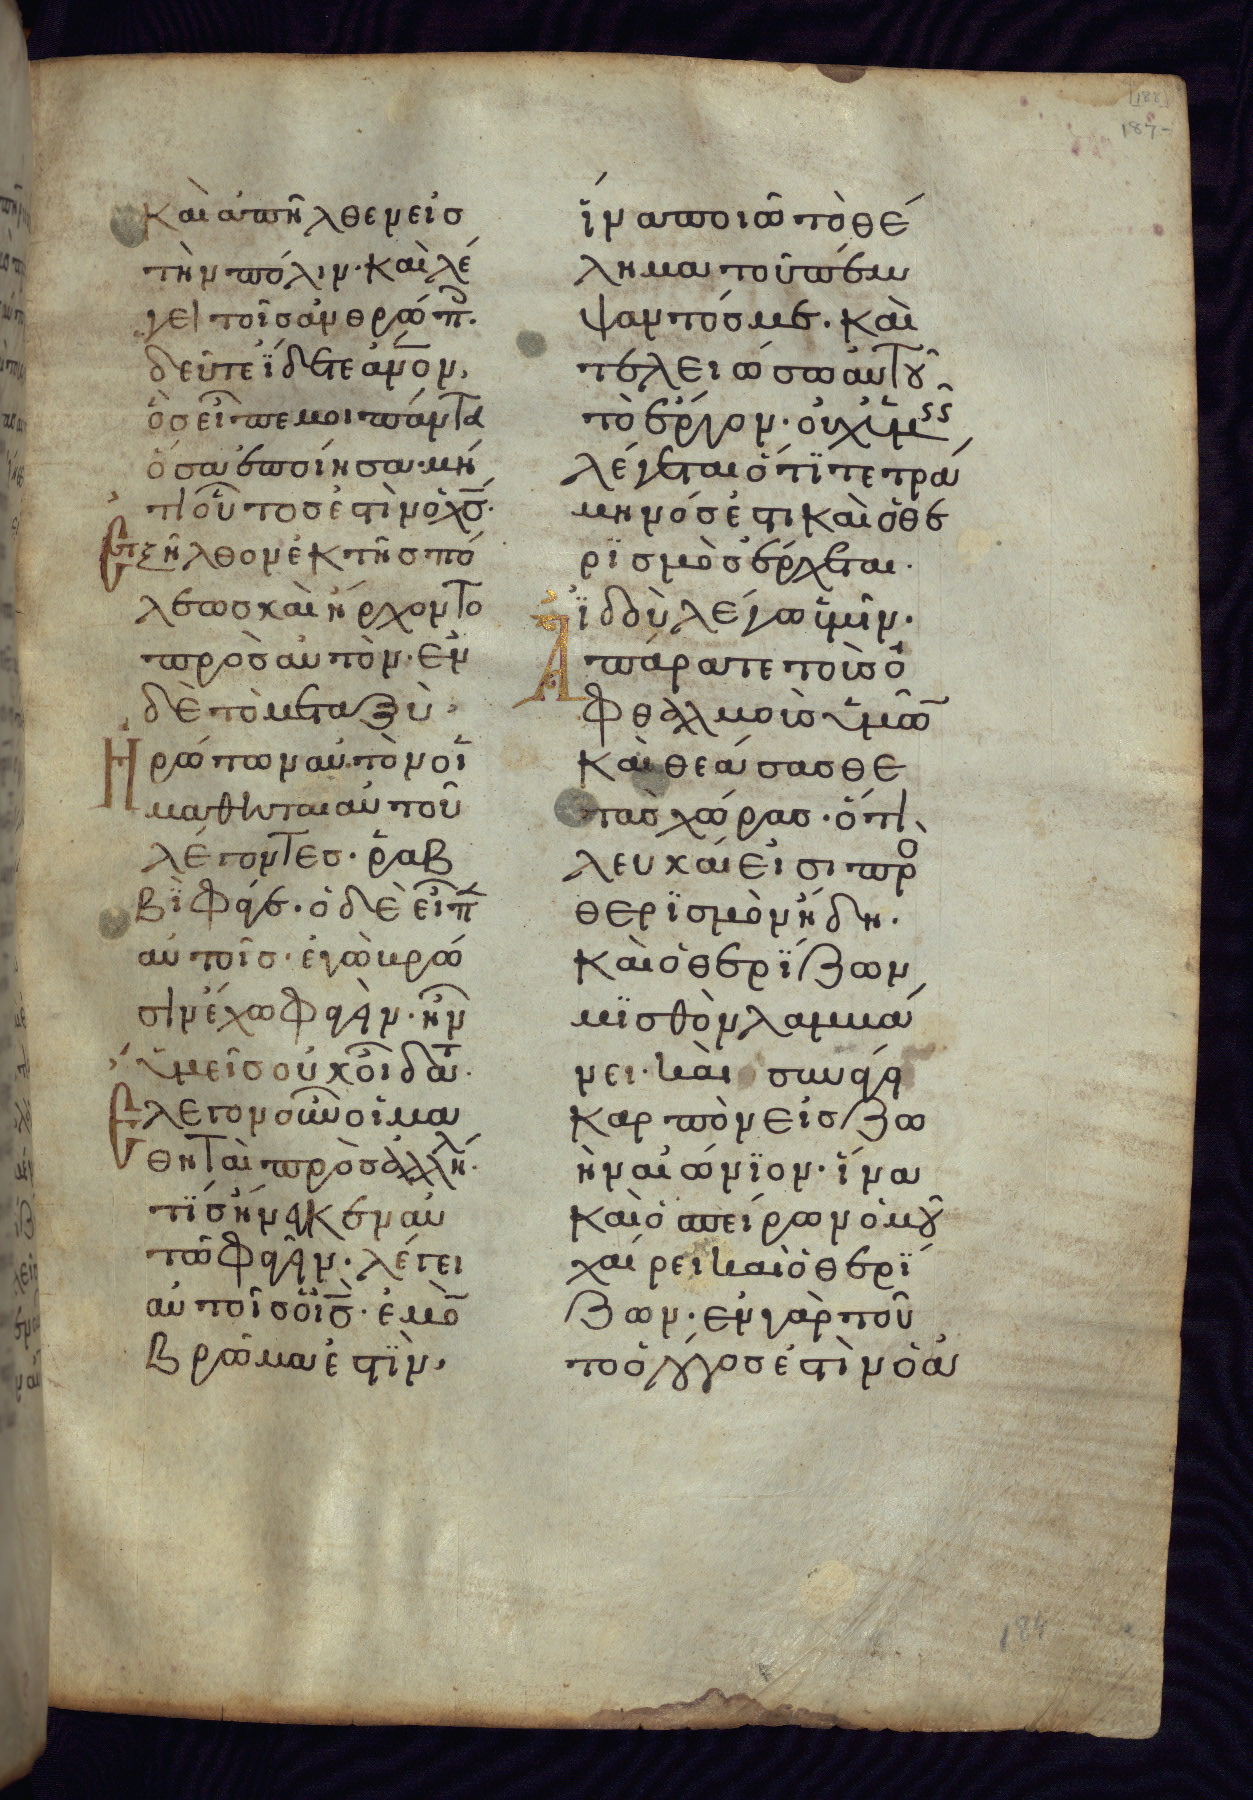 καὶ ἀπῆλθεν εἰσ
τὴν πόλιν· καὶ λέ
γει τοῖσ ἀνθρώπ·
δεῦτε ἴδετε ἄνον,
ὃσ εἶπεμοι πάντα
ὅσα ἐποίησα· μή
τι οὗτοσ ἐστὶν ὁ χσ·
Ἐξῆλθον ἐκ τῆσ πό
λεωσ καὶ ἤρχοντο
πρὸσ αὐτόν· ἐν
δὲ τὸ μεταξὺ·
Ἠρώτων αὐτὸν οἱ
μαθηταὶ αὐτοῦ
λέγοντεσ· ῥαβ
βὶ φάγε· ὁ δὲ εἶπ
αὐτοῖσ· ἐγὼ βρῶ
σιν ἔχω φαγεῖν· ἣν
ὑμεῖσ οὐκ οἴδατ·
Ἔλεγον οὖν οἱ μα
θηταὶ πρὸσ ἀλλήλ·
τίσ ἤνεγκεν αὐ
τῶ φαγεῖν· λέγει
αὐτοῖσ ὁ ισ· ἐμὸ
βρῶμα ἐστὶν,
ἵνα ποιῶ τὸ θέ
λημα τοῦ πέμ
ψαντόσ με· καὶ
τελειώσω αὐτοῦ
τὸ ἔργον· οὐχ ὑμεῖσ
λέγεται ὅτι τετρά
μηνόσ ἐστι καὶ ὁ θε
ρισμὸσ ἔρχεται·
ἰδοὺ λέγω ὑμῖν·
Ἐπάρατε τοὺσ ὀ
φθαλμοὺσ ὑμῶ
καὶ θεάσασθε
τὰσ χώρασ· ὅτι
λευκαί εἰσι προ
θερισμὸν ἤδη·
καὶ ὁ θερίζων
μισθὸν λαμβά
νει· καὶ συνάγει
καρπὸν εἰσ ζω
ὴν αἰώνιον· ἵνα
καὶ ὁ σπείρων ὁμοῦ
χαίρει καὶ ὁ θερί
ζων· ἐν γὰρ τού
τω ὁ λόγοσ ἐστὶν ὁ ἀ
184
187